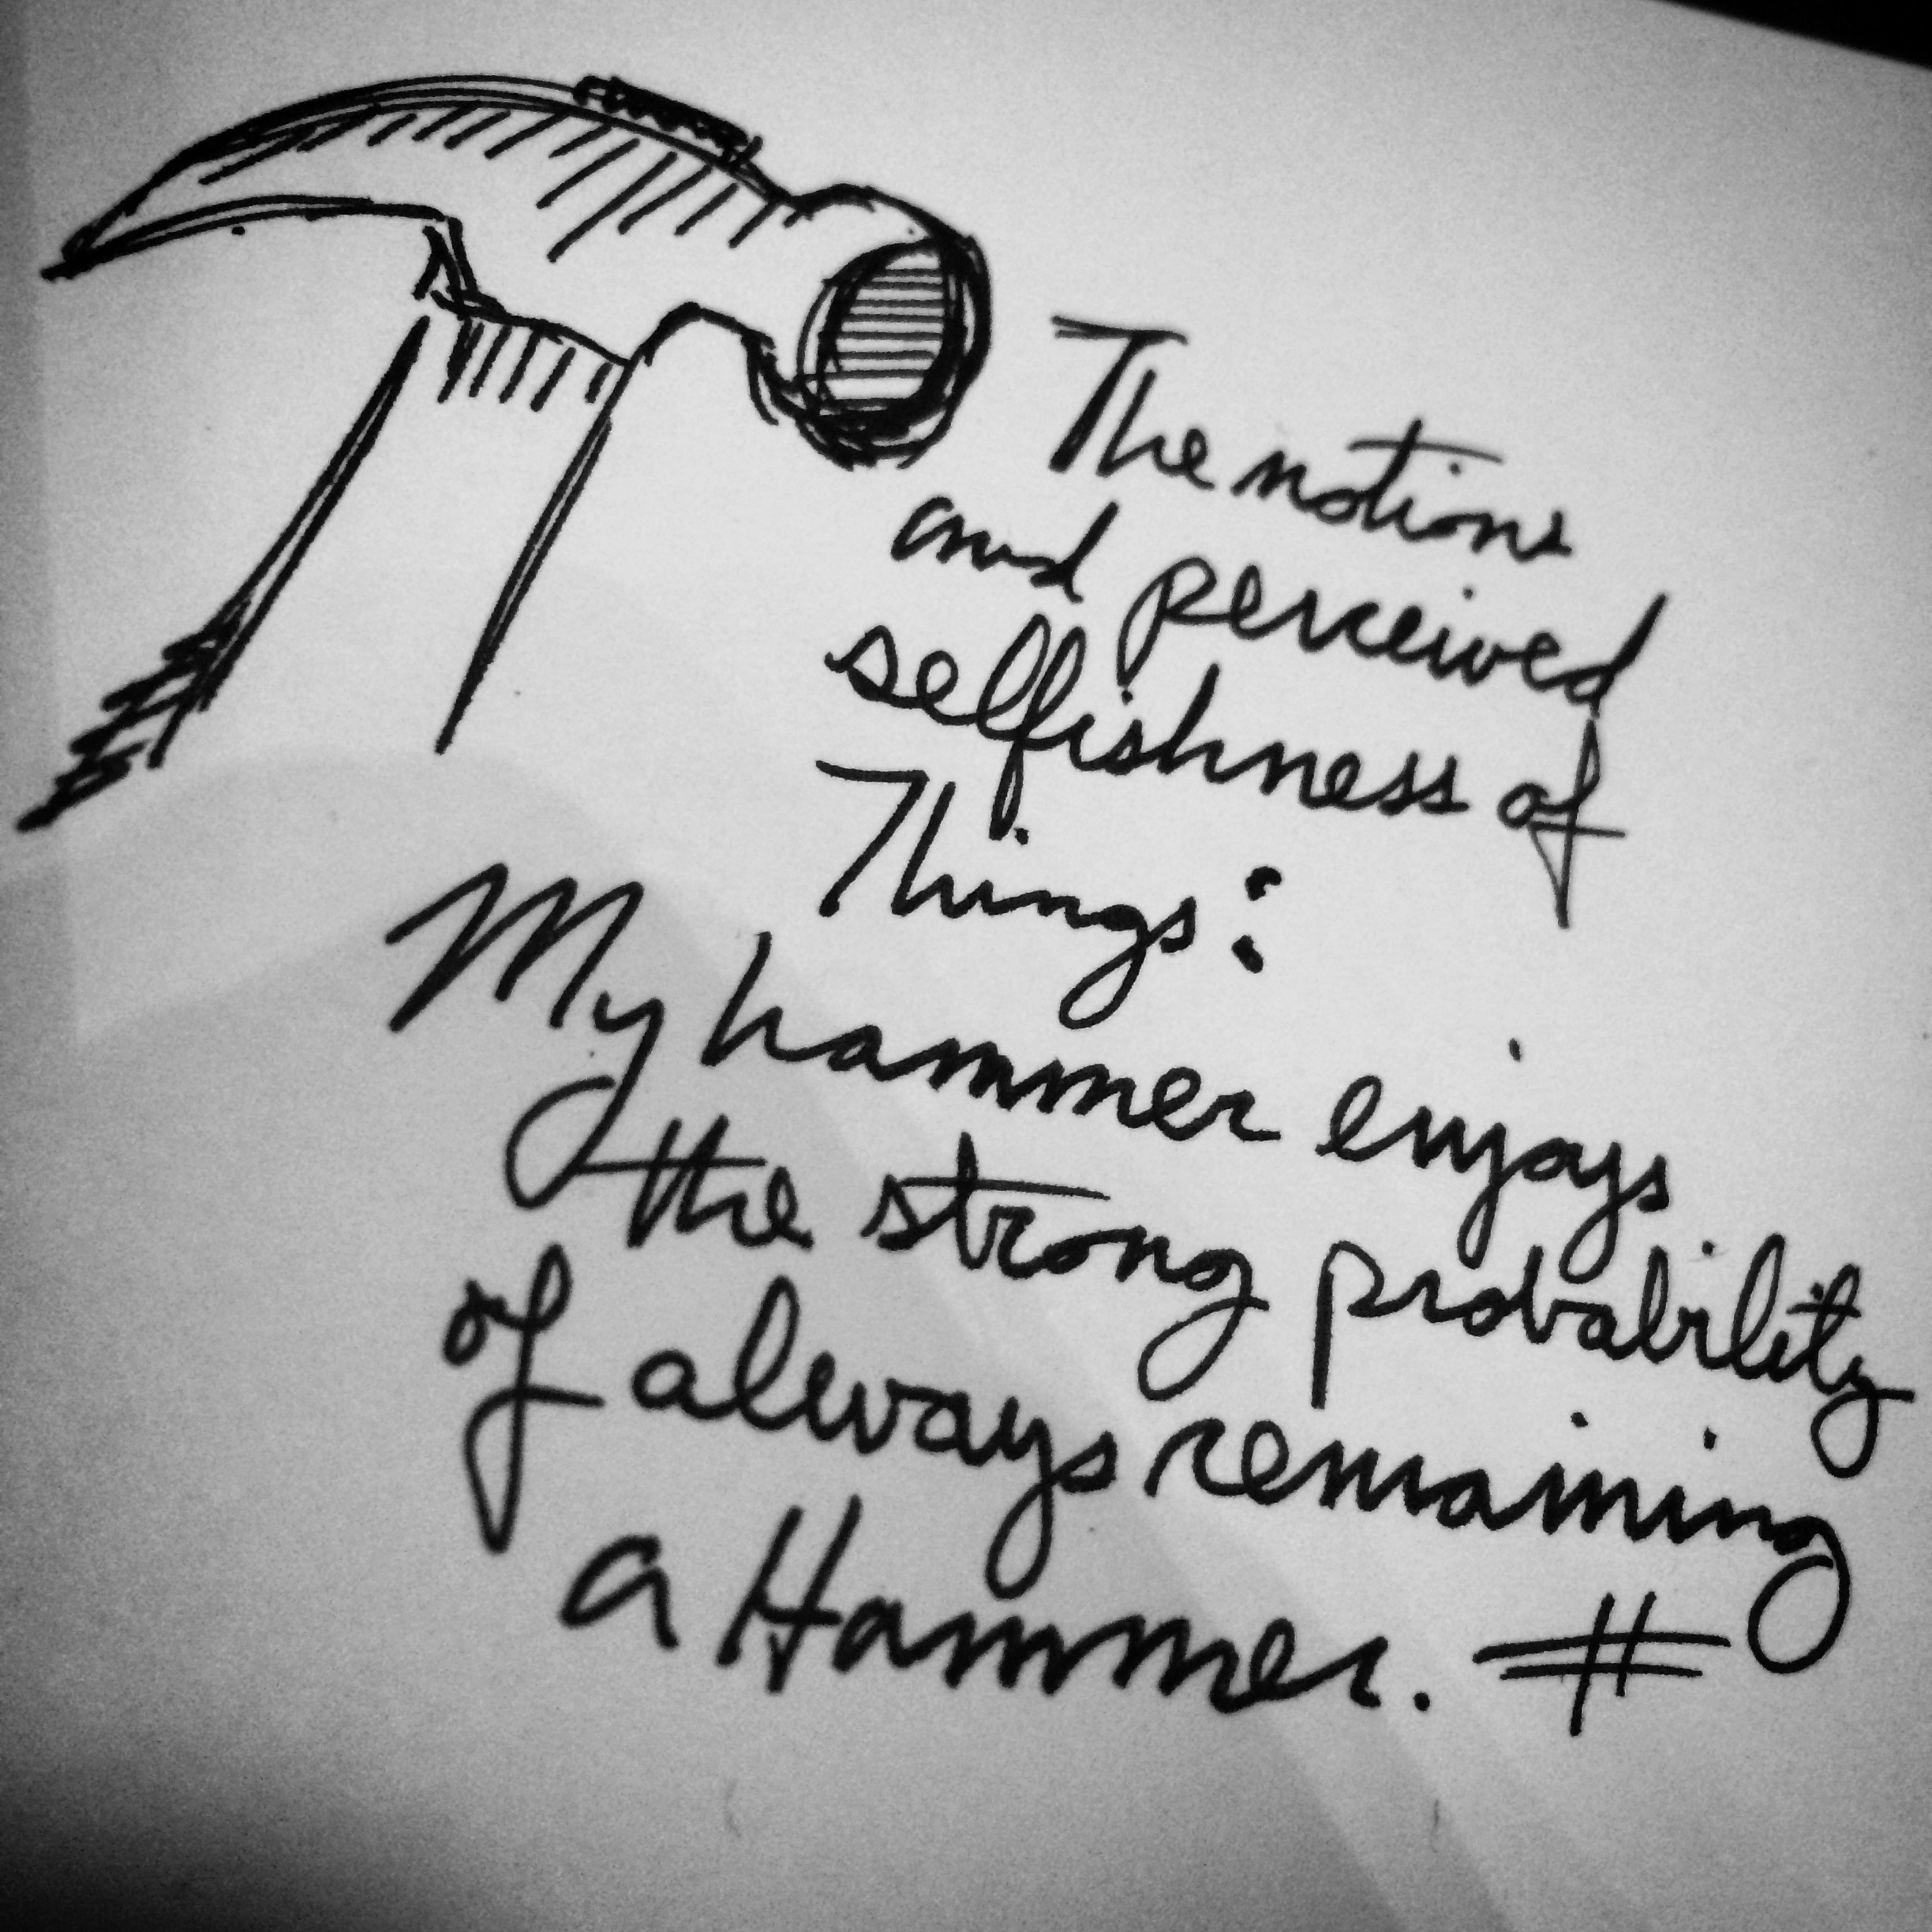 The notions
and perceived
selfishness of
Things:
My hammer enjoys
the strong probability
of always remaining
a Hammer. #